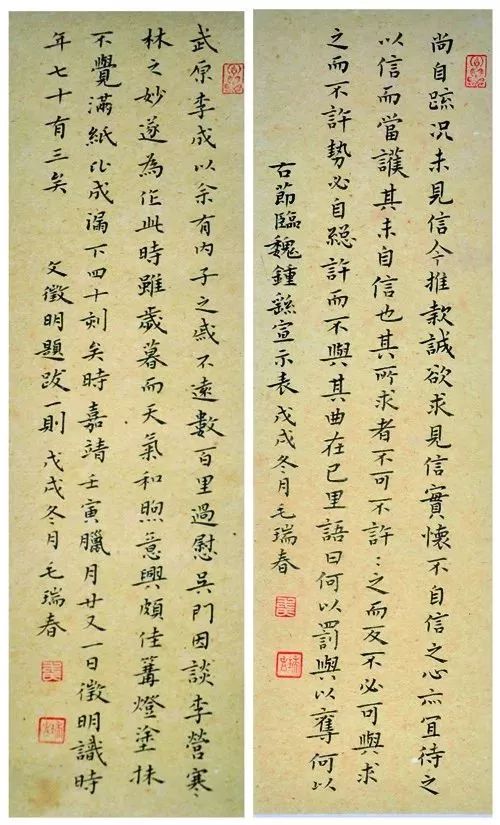 尚自踈況未見信今推款誠欲求見信實懷不自信之心亦冝待之
以信而當護其未自信也其所求者不可不許:之而反不必可與求
之而不許勢必自絕許而不與其曲在己里語曰何以罰與以奪何以
古節臨魏鍾繇宣示表戊戌冬月毛瑞春
武原李成以余有內子之戚不遠數百里過慰吳門因談李營寒
林之妙遂為作此時雖歲暮而天氣和煦意興頗佳篝燈塗抹
不覺滿紙比成漏下四十刻矣時嘉靖壬寅臘月廿又一日徵明識時
年七十有三矣 文徵明題跋一則 戊戌冬月毛瑞春